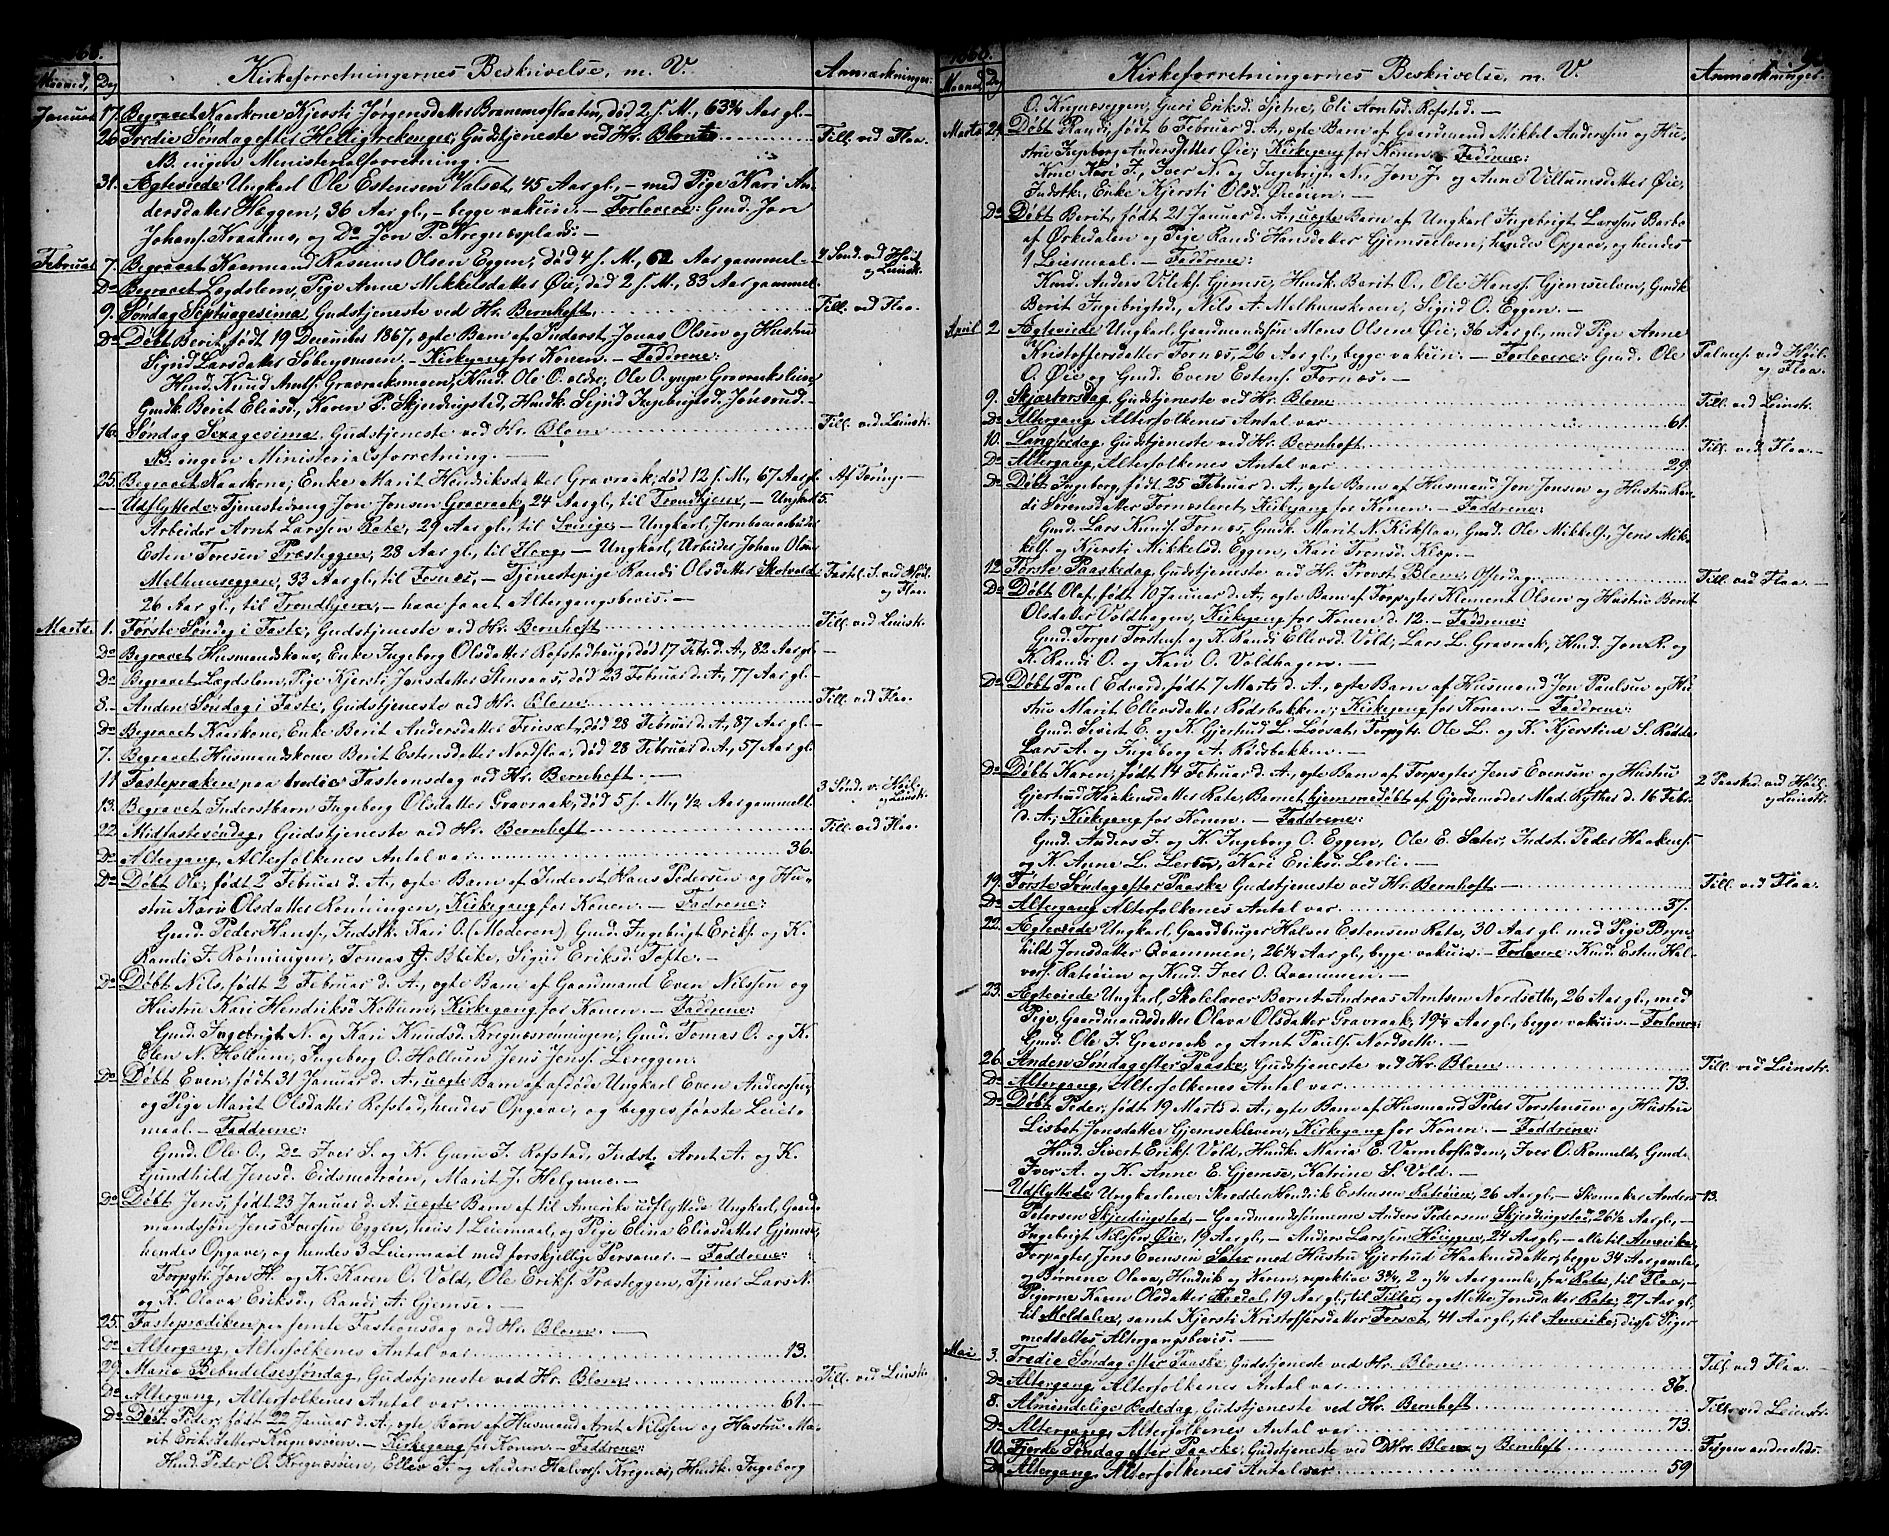 1868.
Maaned, Dag Kirkeforretningernes Beskrivelse, m. V. Anmærkninger.
Januar 17. Begravet Kaarkone Kjersti Jørgensdatter Brenemostraaten, død 2 f. M., 63¾ Aar gl. —
26 Tredie Søndag efter Helligtrekonger, Gudstjeneste ved Hr. Blom Till. ved Flaa.
NB. ingen Ministerialforretning. —
31. Ægteviede: Ungkarl Ole Estensen Valsæt, 45 Aar gl., — med Pige Kari An-
dersdatter Heggen, 36 Aar gl., — begge vakuin. — Forlovere: Gmd. Jon
Johans. Kraaknes, og Do Jon P. Kregnæsplads: —
Februar 7. Begravet Kaarmand Rasmus Olsen Eggen, død 4 f. M., 62 Aar gammel — 4 Sønd. ved Høil.
og Leinstr.
Do Begravet Lægdslem, Pige Anne Mikkelsdatter Øie, død 2 f. M., 83 Aar gammel.
9. Søndag Septuagesima, Gudstjeneste ved Hr. Bernhoft Till. ved Flaa.
Do Døbt Berit, født 19 December 1867, ægte Barn af Inderst Jonas Olsen og Hustru
Sigrid Larsdatter Søbergsmoen. — Kirkegang for Konen. — Faddrene:
Husd. Knud Arntsf. Gravraaksmoen, Husd. Ole O. ældre, Ole O. yngre Gravrakslien
Gmdk. Berit Eliasd., Karen P. Skjerdingstad, Husdk. Sigrid Ingebrigtsd. Jønsrud. —
16. Søndag Sexagesima, Gudstjeneste ved Hr. Blom Till. ved Leinstr.
NB. ingen Ministerialforretning. —
25. Begravet Kaarkone, Enke Marit Hendriksdatter Gravraak, død 12 f. M., 67 Aar gl. Af Tæring. —
— Udflyttede: Tjenestedreng Jon Jonsen Gravraak, 24 Aar gl., til Trondhjem, — Ungkarl 5
Arbeider Arnt Larssen Rate, 29 Aar gl., til Sverige, — Ungkarl, Jernbanearbeider
Esten Toresen Præsteggen, 28 Aar gl., til Haag, — Ungkarl, Arbeider Johan Olsen
Melhuuseggen, 33 Aar gl., til Fornæs, — Tjenestepige Randi Olsdatter Skotvold Fastel. S. ved Høil.
og Flaa.
26 Aar gl., til Trondhjem, — have faaet Altergangsbevis. —
Marts. 1. Første Søndag i Faste, Gudstjeneste ved Hr. Bernhoft Till. ved Leinstr.
Do Begravet Husmandskone, Enke Ingeborg Olsdatter Rofstadhaug, død 17 Febr. d. A., 82 Aar gl —
Do Begravet Lægdslem, Pige Kjersti Jonsdatter Stensaas, død 23 Februar d. A., 77 Aar gl. —
8. Anden Søndag i Faste, Gudstjeneste ved Hr. Blom Till. ved Flaa. —
Do Begravet Kaarkone, Enke Berit Andersdatter Finsæt, død 28 Februar d. A., 87 Aar gl. —
7. Begravet Husmandskone Berit Estensdatter Nordflaa, død 28 Februar d. A., 57 Aar gl.
11. Fastepræken paa tredie Fastionsdag ved Hr. Bernhoft. —
13. Begravet Inderstbarn Ingeborg Olsdatter Gravraak, død 5 f. M., ½ Aar gammelt 3. Sønd. v. Høil.
og Leinstr.
22. Midfastesøndag, Gudstjeneste ved Hr. Bernhoft Till. ved Flaa.
Do Altergang, Alterfolkenes Antal var 36.
Do Døbt Ole, født 2 Februar d. A., ægte Barn af Inderst Hans Pedersen og Hu-
stru Kari Olsdatter Rønningen, Kirkegang for Konen. — Faddrene:
Gmd. Peder Hansf., Indstk. Kari O. (Moderen) Gmd. Ingebrigt Eriks. og K.
Randi J. Rønningen, Tomas J. Bleke, Sigrid Eriksd. Tofte. —
Do Døbt Nils, født 2 Februar d. A., ægte Barn af Gaardmand Even Nilssen og
Hustru Kari Hendriksd. Hollum, Kirkegang for Konen. — Faddrene:
Gmd. Ingebrigt N. og Kari Knudsd. Kregnæsrønningen, Gmd. Tomas O. og K.
Elen N. Hollum, Ingeborg O. Hollum Jens Jonsf. Lereggen.
Do Døbt Even, født 31 Januar d. A., uægte Barn af afdøde Ungkarl Even Anderssen,
og Pige Marit Olsdatter Rofstad, hendes Opgave, og begges første Leier-
maal. — Faddrene:
Gmd. Ole O., Do Iver S. og K. Guru J. Rofstad, Indst. Arnt A. og K.
Gundhild Jensd. Eidsmstrøen, Marit J. Helgemo. —
Do Døbt Jens, født 23 Januar d. A. uægte Barn af til Amerika udflyttede Ungkarl, Gaard-
mandssøn Jens Iversen Eggen, hans 1 Leiermaal, og Pige Elina Eliasdatter Gjemse,
hendes Opgave, og hendes 3 Leiermaal med forskjellige Personer. — Faddrene:
Torpgtr. Jon H. og K. Karen O. Vold, Ole Erikf. Præsteggen, Tjener Lars N.
og K. Olava Eriksd., Randi A. Gjemse. —
25. Fasteprædiken paa femte Fastionsdag ved Hr. Blom. —
Do Altergang, Alterfolkenes Antal var 13.
29. Mariæ Bebudelsesøndag, Gudstjeneste ved Hr. Blom Till. ved Leinstr.
Do Altergang, Alterfolkenes Antal var 61. —
Do Døbt Peder, født 22 Januar d. A., ægte Barn af Husmand Arnt Nilssen og Hustru Ma-
rit Eriksdatter Kregnæsøien. — Kirkegang for Konen. — Faddrene:
Husd. Peder O. Kregnæsøien, Ellev J. og Anders Halvorsf. Kregnæs, Husdk. Ingeborg
1868.
Maaned Dag Kirkeforretningernes Beskrivelse, m. V. Anmærkninger.
O. Kregnæseggen, Guri Eriksd. Sjetne, Eli Arntsd. Rofstad. —
Marts 29. Døbt Randi, født 6 Februar d. A., ægte Barn af Gaardmand Mikkel Anderssen og Hu-
stru Ingeborg Andersdatter Øie, Kirkegang for Konen. — Faddrene:
Krne Kari J., Iver N. og Ingebrigt N., Jon J. og Anne Villumsdatter Øie,
Indstk., Enke Kjersti Olsd. Øieøien. —
Do Døbt Berit, født 21 Januar d. A., uægte Barn af Ungkarl Ingebrigt Larssen Berbo
af Ørkedalen og Pige Randi Hansdatter Gjemselven, hendes Opgave, og hendes
1 Leiermaal. — Faddrene:
Kmd. Anders Vilekf. Gjemse, Husdk. Berit O., Ole Hansf. Gjemselven, Gmdk.
Berit Ingebrigtsd., Nils A. Melhusskroen, Sigrid O. Eggen. —
April 2. Ægteviede Ungkarl, Gaardmandssøn Mons Olsen Øie, 36 Aar gl., med Pige Anne
Kristoffersdatter Fornæs, 26 Aar gl., begge vakuin: — Forlovere: Gmd. Ole Palmes. ved Høil.
og Flaa.
O. Øie og Gmd. Even Estensf. Fornæs. —
9. Skjærtorsdag, Gudstjeneste ved Hr. Blom Till. ved Leinstr.
Do Altergang, Alterfolkenes Antal var 61.
10. Langfredag, Gudstjeneste ved Hr. Bernhoft Till. ved Flaa. —
Do Altergang, Alterfolkenes Antal var 29.
Do Døbt Ingeborg, født 25 Februar d. A., ægte Barn af Husmand Jon Jonsen og Hustru Ran-
di Sørensdatter Fornesteret, Kirkegang for Konen. — Faddrene:
Gmd. Lars Knudf. Fornæs, Gmdk. Marit N. Kirkflaa, Gmd. Ole Mikkelf., Jens Mik-
kelf. og Kjersti Mikkelsd. Eggen, Kari Tronsd. Klep. —
12. Første Paaskedag, Gudstjeneste ved Hr. Provst Blom, Offerdag, Till. ved Flaa. —
Do Døbt Olaf, født 10 Januar d. A., ægte Barn af Torpagter Klement Olsen og Hustru Berit
Olsdatter Voldhagen, Kirkegang for Konen d. 12. — Faddrene:
Gmd. Torger Torstenf. og K. Randi Ellevsd. Vold, Lars L. Gravraak, Husd. Jon R. og
K. Randi O. og Kari O. Voldhagen. —
Do Døbt Paul Edvard, født 7 Marts d. A., ægte Barn af Husmand Jon Paulsen og Hu-
stru Marit Ellevsdatter Rødsbakken, Kirkegang for Konen. — Faddrene:
Gmd. Sivert E. og K. Gjertrud L. Løvsæt, Torpgtr. Ole L. og K. Kjerstine S. Rødde,
Lars A. og Ingeborg A. Rødsbakken. —
Do Døbt Karen, født 14 Februar d. A., ægte Barn af Torpagter Jens Evensen og Hustru
Gjertrud Haakensdatter Rate, Barnet hjemmedøbt af Gjordemoder Mad. Kyther d. 16 Febr. 2 Paasked. ved Høil.
og Leinstr.
d. A.; Kirkegang for Konen. — Faddrene:
Gmd. Anders J. og K. Ingeborg O. Eggen, Ole E. Sæter, Indst. Peder Haakenf.
og K. Anne L. Lerbro, Kari Eriksd. Lerli. —
19. Første Søndag efter Paaske, Gudstjeneste ved Hr. Bernhoft Till. ved Flaa.
Do Altergang, Alterfolkenes Antal var 37.
22. Ægteviede: Ungkarl, Gaardbruger Halvor Estensen Rate, 30 Aar gl., med Pige Bryn-
hild Jonsdatter Qvammen, 26¼ Aar gl., begge vakuin. — Forlovere: Kmd. Esten Hal-
vorsf. Rateøien og Kmd. Iver O. Qvammen. —
23. Ægteviede: Ungkarl, Skolelærer Bernt Andreas Arntsen Nordseth, 26 Aar gl., med
Pige, Gaardmandsdatter Olava Olsdatter Gravraak, 19¼ Aar gl., begge vakuin. — Forlovere:
Gmd. Ole J. Gravraak og Arnt Paulf. Nordseth. —
26. Anden Søndag efter Paaske, Gudstjeneste ved Hr. Blom Till. ved Leinstr.
Do Altergang, Alterfolkenes Antal var 73.
Do Døbt Peder, født 19 Marts d. A., ægte Barn af Husmand Peder Torstensen og Hustru
Lisbet Jonsdatter Gjemsekleven, Kirkegang for Konen. — Faddrene:
Husd. Sivert Erikf. Vold, Husdk. Maria E. Varmbostaden, Iver O. Romuld, Gmd.
Iver A. og K. Anne E. Gjemse, Katrine S. Vold. —
— Udflyttede Ungkarlene: Skrædder Hendrik Estensen Rateøien, 26 Aar gl., — Skomaker Anders 13.
Petersen Skjerdingstad, — Gaardmandssønnerne Anders Pedersen Skjerdingstad, 26½ Aar gl., —
Ingebrigt Nilssen Øie, 19 Aar gl., — Anders Larssen Hougen, 24 Aar gl., — alle til Amerika,
Torpagter Jens Evensen Sæter med Hustru Gjertrud Haakensdatter, begge 34 Aar gamle,
og Børnene Olava, Hendrik og Karen, repektive 3¾, 2 og ¼ Aar gamle, fra Rate, til Flaa, —
Pigerne Karen Olsdatter Havdal, 19 Aar gl., til Tiller, og Mette Jonsdatter Rate, 27 Aar gl.,
til Meldalen, samt Kjersti Kristoffersdatter Forsæt, 41 Aar gl., til Amerika, disse Piger
meddeltes Altergangsbevis. —
Mai 3. Tredie Søndag efter Paaske, Gudstjeneste ved Hr. Blom Till. ved Flaa —
Do Altergang, Alterfolkenes Antal var 86.
8. Almindelige Bededag, Gudstjeneste ved Hr. Bernhoft Till. ved Leinstr.
Do Altergang, Alterfolkenes Antal var 73.
10. Fjerde Søndag efter Paaske, Gudstjeneste ved Hr. Blom og Bernhoft Ingen andresteds.
Do Altergang, Alterfolkenes Antal var 59